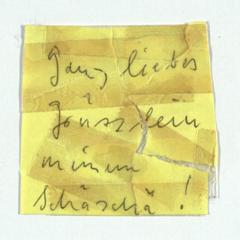 Ganz liebes
Grüsslein
minum
schäschä !